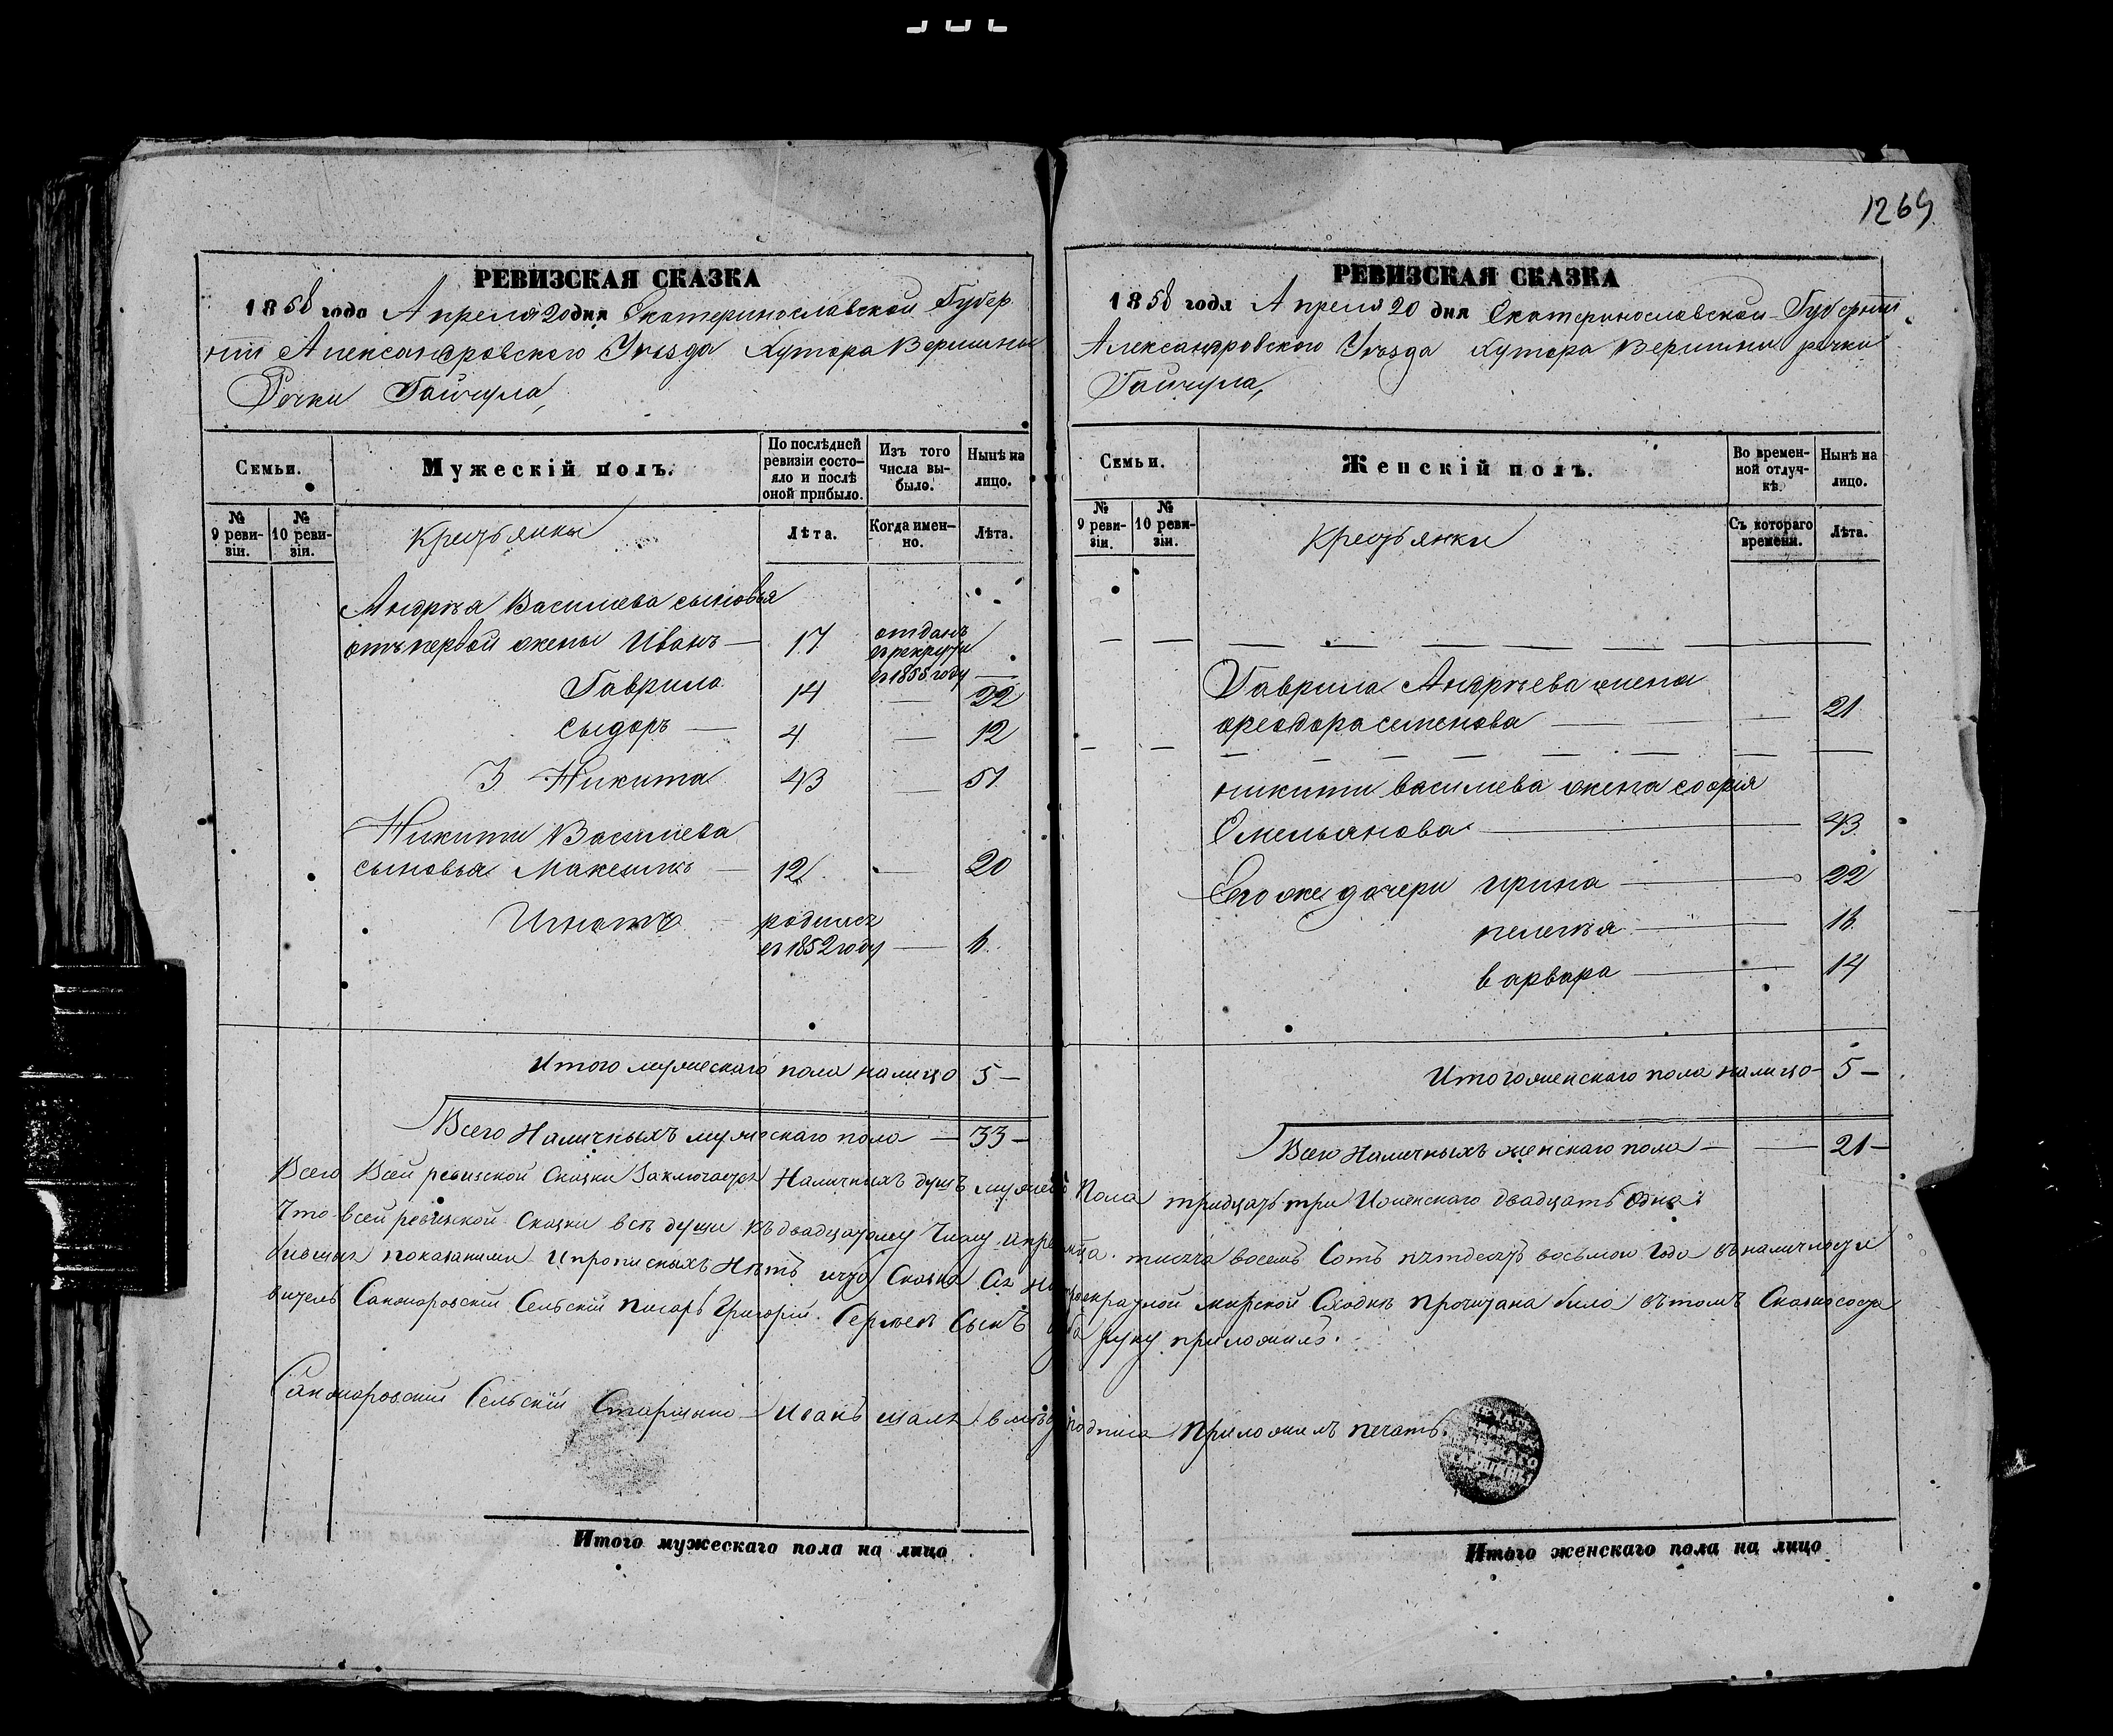 1269
РЕВИЗСКАЯ СКАЗКА
1858 года Апреля 20 дня Екатеринославской Губер
нии Александровского Уѣзда Хутора Вершины
Речки Гайчула,
Семьи.
Мужескій полъ.
По послѣдней ревизіи состояло и послѣ оной прибыло.
Изъ того числа выбыло.
Нынѣ на лицо.
№ 9 ревизіи.
№ 10 ревизіи.
Крестьяны
Лѣта.
Когда именно.
Лѣта.
Андрѣя Василиева сыновья
отъ первой жены Иванъ — 17 отданъ в рекруты в 1855 году —
Гаврила 14 — 22
Сыдоръ — 4 — 12
3 Никита 43 — 51
Никиты Василиева
сыновья Максимъ — 12 — 20
Игнатъ родился в 1852 году — 6
Итого мужескаго пола налицо 5 —
Всего Наличныхъ мужескаго пола — 33 —
РЕВИЗСКАЯ СКАЗКА
1858 года Апреля 20 дня Екатеринославской Губернии
Александровского Уѣзда Хутора Вершины речки
Гайчула,
Семьи.
Женскій полъ.
Во временной отлучкѣ.
Нынѣ на лицо.
№ 9 ревизіи.
№ 10 ревизіи.
Крестьянки
Съ котораго времени.
Лѣта.
Гаврила Андрѣева жена
Феодора семенова — 21
никиты василиева жена софия
Омельянова — 43
Его же дочери ирина — 22
пелегия — 16
варвара — 14
Итого женскаго пола налицо — 5 —
Всего Наличныхъ женскаго пола — — 21 —
Всего Всей ревизской Сказки Заключается Наличныхъ душъ Пола тридцать три Иженскаго двадцать одна
Что всей ревизской Сказки всѣ души къ двадцатому Числу тысяча восемь Сотъ пятдесятъ восьмого Года въ наличности
показаними И прописныхъ Нѣтъ что Сказка Ся мирской Сходкѣ Прочитана било въ томъ
Сельскій Писарь Григорій Сынъ руку приложилъ.
Сельскій Старшина Иванъ подписа Приложилъ печать
Итого мужескаго пола на лицо
Итого женскаго пола на лицо